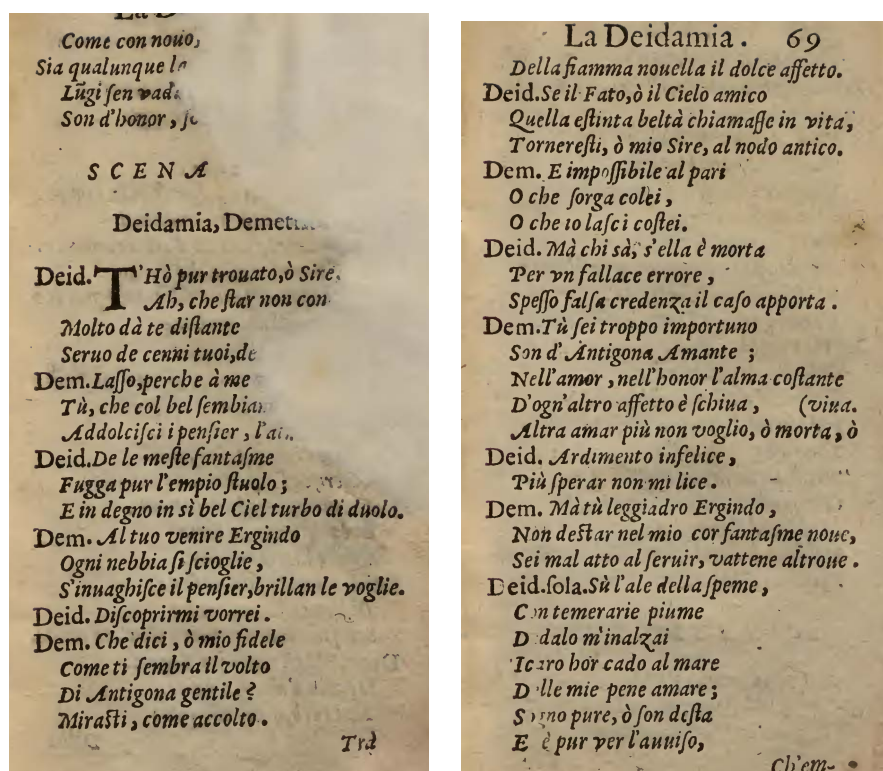 Come con nouo,
Sia qualunque
Lũgi sen vad
Son d'honor,
SCENA
Deidamia, Demet
Deid. T'Hò pur trouato, ò Sire,
Ah, che star non con
Molto dà te distante
Seruo de cenni tuoi, de
Dem. Lasso, perche à me
Tù, che col bel sembian
Addolcisci i pensier, l'a
Deid. De le meste fantasme
Fugga pur l'empio stuolo;
E in degno in sì bel Ciel turbo di duolo.
Dem. Al tuo venire Ergindo
Ogni nebbia si scioglie,
S'inuaghisce il pensier, brillan le voglie.
Deid. Discoprirmi vorrei.
Dem. Che dici, ò mio fidele
Come ti sembra il volto
Di Antigona gentile?
Mirasti, come accolto.
Trà
La Deidamia. 69
Della fiamma nouella il dolce affetto.
Deid. Se il Fato, ò il Cielo amico
Quella estinta beltà chiamasse in vita,
Torneresti, ò mio Sire, al nodo antico.
Dem. E impossibile al pari
O che sorga colei,
O che io lasci costei.
Deid. Mà chi sà, s'ella è morta
Per vn fallace errore,
Spesso falsa credenza il caso apporta.
Dem. Tù sei troppo importuno
Son d'Antigona Amante;
Nell'amor, nell'honor l'alma costante
D'ogn'altro affetto è schiua, (viua.
Altra amar più non voglio, ò morta, ò
Deid. Ardimento infelice,
Più sperar non mi lice.
Dem. Mà tù leggiadro Ergindo,
Non destar nel mio cor fantasme noue,
Sei mal atto al seruir, vattene altroue.
Deid. sola. Sù l'ale della speme,
Con temerarie piume
Dedalo m'inalzai
Icaro hor cado al mare
Delle mie pene amare;
Sogno pure, ò son desta
E è pur ver l'auuiso,
Ch'em-